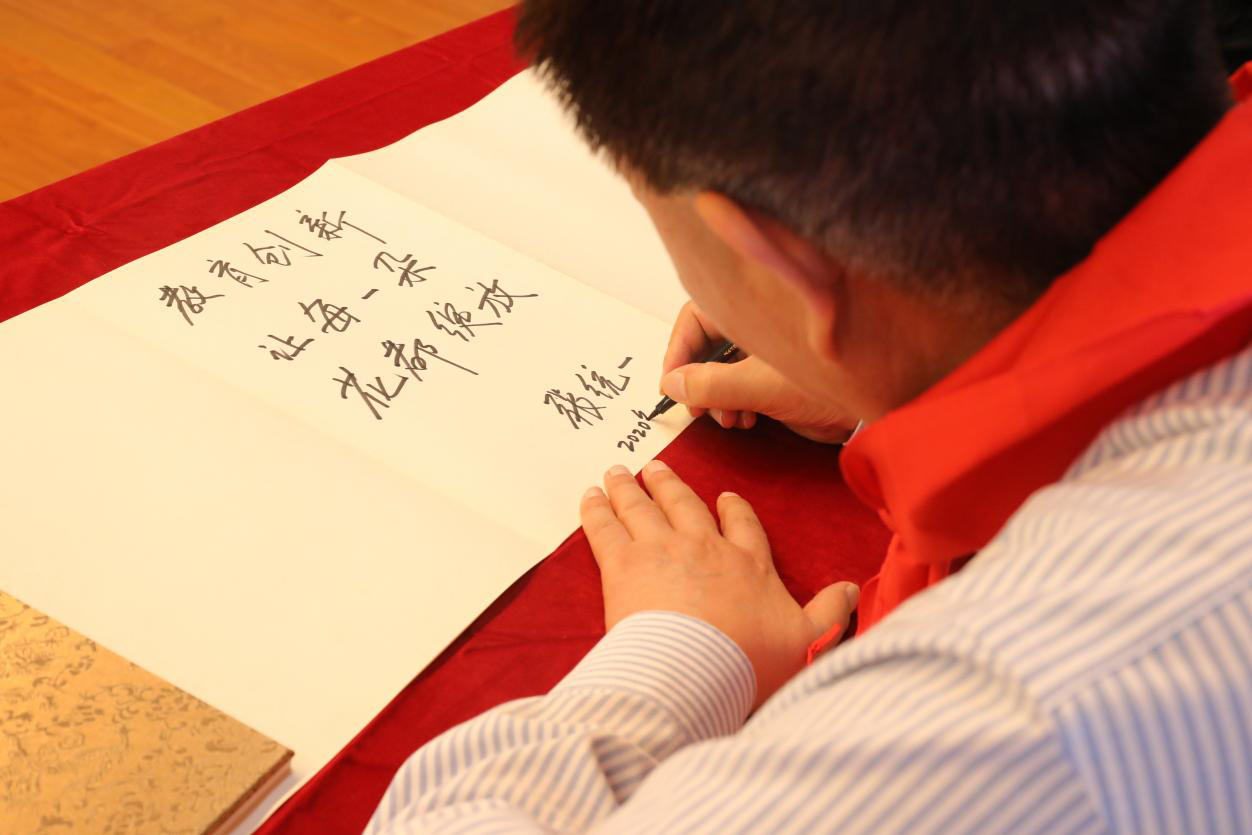 教育创新
让每一朵
花都绽放
张统一
2020